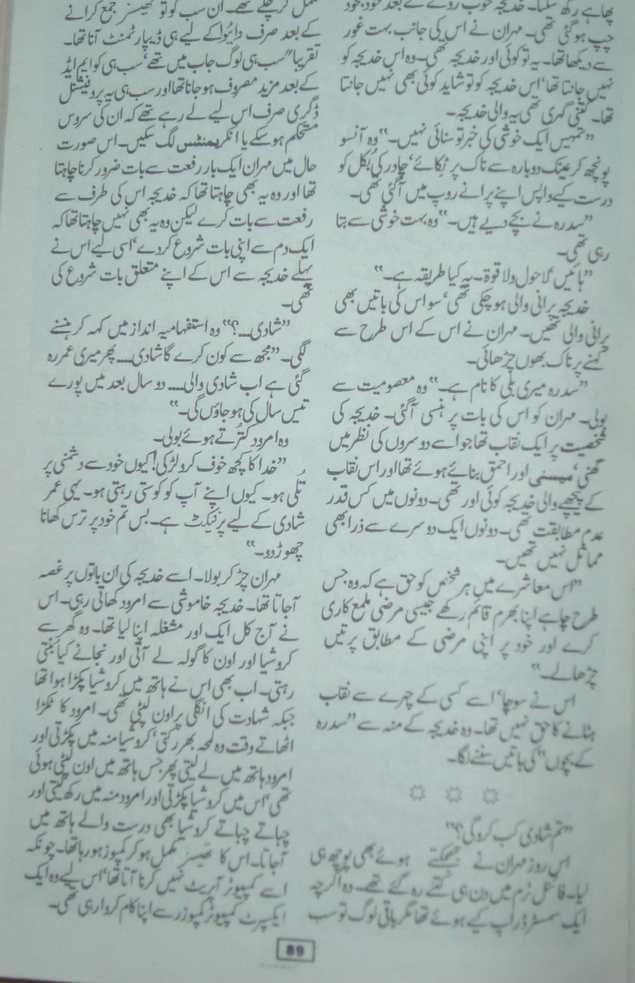 چپ ہو گئی تھی۔ مہران نے اس کی جانب بہت غور
سے دیکھا تھا۔ یہ تو کوئی اور خدیجہ تھی۔ وہ اس خدیجہ کو
نہیں جانتا تھا‘ اس خدیجہ کو تو شاید کوئی بھی نہیں جانتا
تھا۔ کتنی گہری تھی یہ والی خدیجہ۔
”تمہیں ایک خوشی کی خبر تو سنائی نہیں۔“ وہ آنسو
پونچھ کر عینک دوبارہ سے ناک پر ٹکائے‘ چادر کی بُکل کو
درست کیے واپس اپنے پرانے روپ میں آگئی تھی۔
”سدرہ نے بچے دیے ہیں۔“ وہ بہت خوشی سے بتا
رہی تھی۔
”ہائیں‘ لاحول ولا قوۃ۔ یہ کیا طریقہ ہے۔“
خدیجہ پرانی والی ہو چکی تھی‘ سو اس کی باتیں بھی
پرانی والی تھیں۔ مہران نے اس کے اس طرح سے
کہنے پر ناک بھوں چڑھائی۔
”سدرہ میری بلی کا نام ہے۔“ وہ معصومیت سے
بولی۔ مہران کو اس کی بات پر ہنسی آگئی۔ خدیجہ کی
شخصیت پر ایک نقاب تھا جو اسے دوسروں کی نظر میں
گھنی‘ میسنی اور احمق بنائے ہوئے تھا اور اس نقاب
کے پیچھے والی خدیجہ کوئی اور تھی۔ دونوں میں کس قدر
عدم مطابقت تھی۔ دونوں ایک دوسرے سے ذرا بھی
مماثل نہیں تھیں۔
”اس معاشرے میں ہر شخص کو حق ہے کہ وہ جس
طرح چاہے اپنا بھرم قائم رکھے جیسی مرضی ملمع کاری
کرے اور خود پر اپنی مرضی کے مطابق پرتیں
چڑھالے۔“
اس نے سوچا‘ اسے کسی کے چہرے سے نقاب
ہٹانے کا حق نہیں تھا۔ وہ خدیجہ کے منہ سے ”سدرہ
کے بچوں“ کی باتیں سننے لگا۔
”تم شادی کب کرو گی؟“
اس روز مہران نے جھجکتے ہوئے بھی پوچھ ہی
لیا۔ فائنل ٹرم میں دن ہی کتنے رہ گئے تھے۔ وہ اگرچہ
ایک سمسٹر ڈراپ کیے ہوئے تھا مگر باقی لوگ تو سب
مکمل کر چکے تھے۔ ان سب کو تو تھیسز جمع کرانے
کے بعد صرف وائوا کے لیے ہی ڈیپارٹمنٹ آنا تھا۔
تقریباً سب ہی لوگ جاب میں تھے‘ سب ہی کو ایم ایڈ
کے بعد مزید مصروف ہو جانا تھا اور سب ہی یہ پروفیشنل
ڈگری صرف اس لیے لے رہے تھے کہ ان کی سروس
مستحکم ہو سکے یا انکریمنٹس لگ سکیں۔ اس صورت
حال میں مہران ایک بار رفعت سے بات ضرور کرنا چاہتا
تھا اور وہ یہ بھی چاہتا تھا کہ خدیجہ اس کی طرف سے
رفعت سے بات کرے لیکن وہ یہ بھی نہیں چاہتا تھا کہ
ایک دم سے اپنی بات شروع کر دے‘ اسی لیے اس نے
پہلے خدیجہ سے اس کے اپنے متعلق بات شروع کی
تھی۔
”شادی۔۔۔؟“ وہ استفہامیہ انداز میں کہہ کر ہنسنے
لگی۔ ”مجھ سے کون کرے گا شادی۔۔۔ پھر میری عمر رہ
گئی ہے اب شادی والی۔۔۔ دو سال بعد میں پورے
تیس سال کی ہو جاؤں گی۔“
وہ امرود کترتے ہوئے بولی۔
”خدا کا کچھ خوف کرو لڑکی! کیوں خود سے دشمنی پر
تُلی ہو۔ کیوں اپنے آپ کو کوستی رہتی ہو۔ یہی عمر
شادی کے لیے پرفیکٹ ہے۔ بس تم خود پر ترس کھانا
چھوڑ دو۔“
مہران چڑ کر بولا۔ اسے خدیجہ کی ان باتوں پر غصہ
آ جاتا تھا۔ خدیجہ خاموشی سے امرود کھاتی رہی۔ اس
نے آج کل ایک اور مشغلہ اپنا لیا تھا۔ وہ گھر سے
کروشیا اور اون کا گولہ لے آتی اور نجانے کیا بُنتی
رہتی۔ اب بھی اس نے ہاتھ میں کروشیا پکڑا ہوا تھا
جبکہ شہادت کی انگلی پر اون لپٹی تھی۔ امرود کا ٹکڑا
اٹھاتے وقت وہ لمحہ بھر رکتی‘ کروشیا منہ میں پکڑتی اور
امرود ہاتھ میں لے لیتی پھر جس ہاتھ میں اون لپٹی ہوئی
تھی‘ اس میں کروشیا پکڑتی اور امرود منہ میں رکھ لیتی اور
چباتے چباتے کروشیا بھی درست والے ہاتھ میں
آ جاتا۔ اس کا تھیسز مکمل ہو کر کمپوز ہو رہا تھا۔ چونکہ
اسے کمپیوٹر آپریٹ نہیں کرنا آتا تھا‘ اس لیے وہ ایک
ایکسپرٹ کمپیوٹر کمپوزر سے اپنا کام کروا رہی تھی۔
89